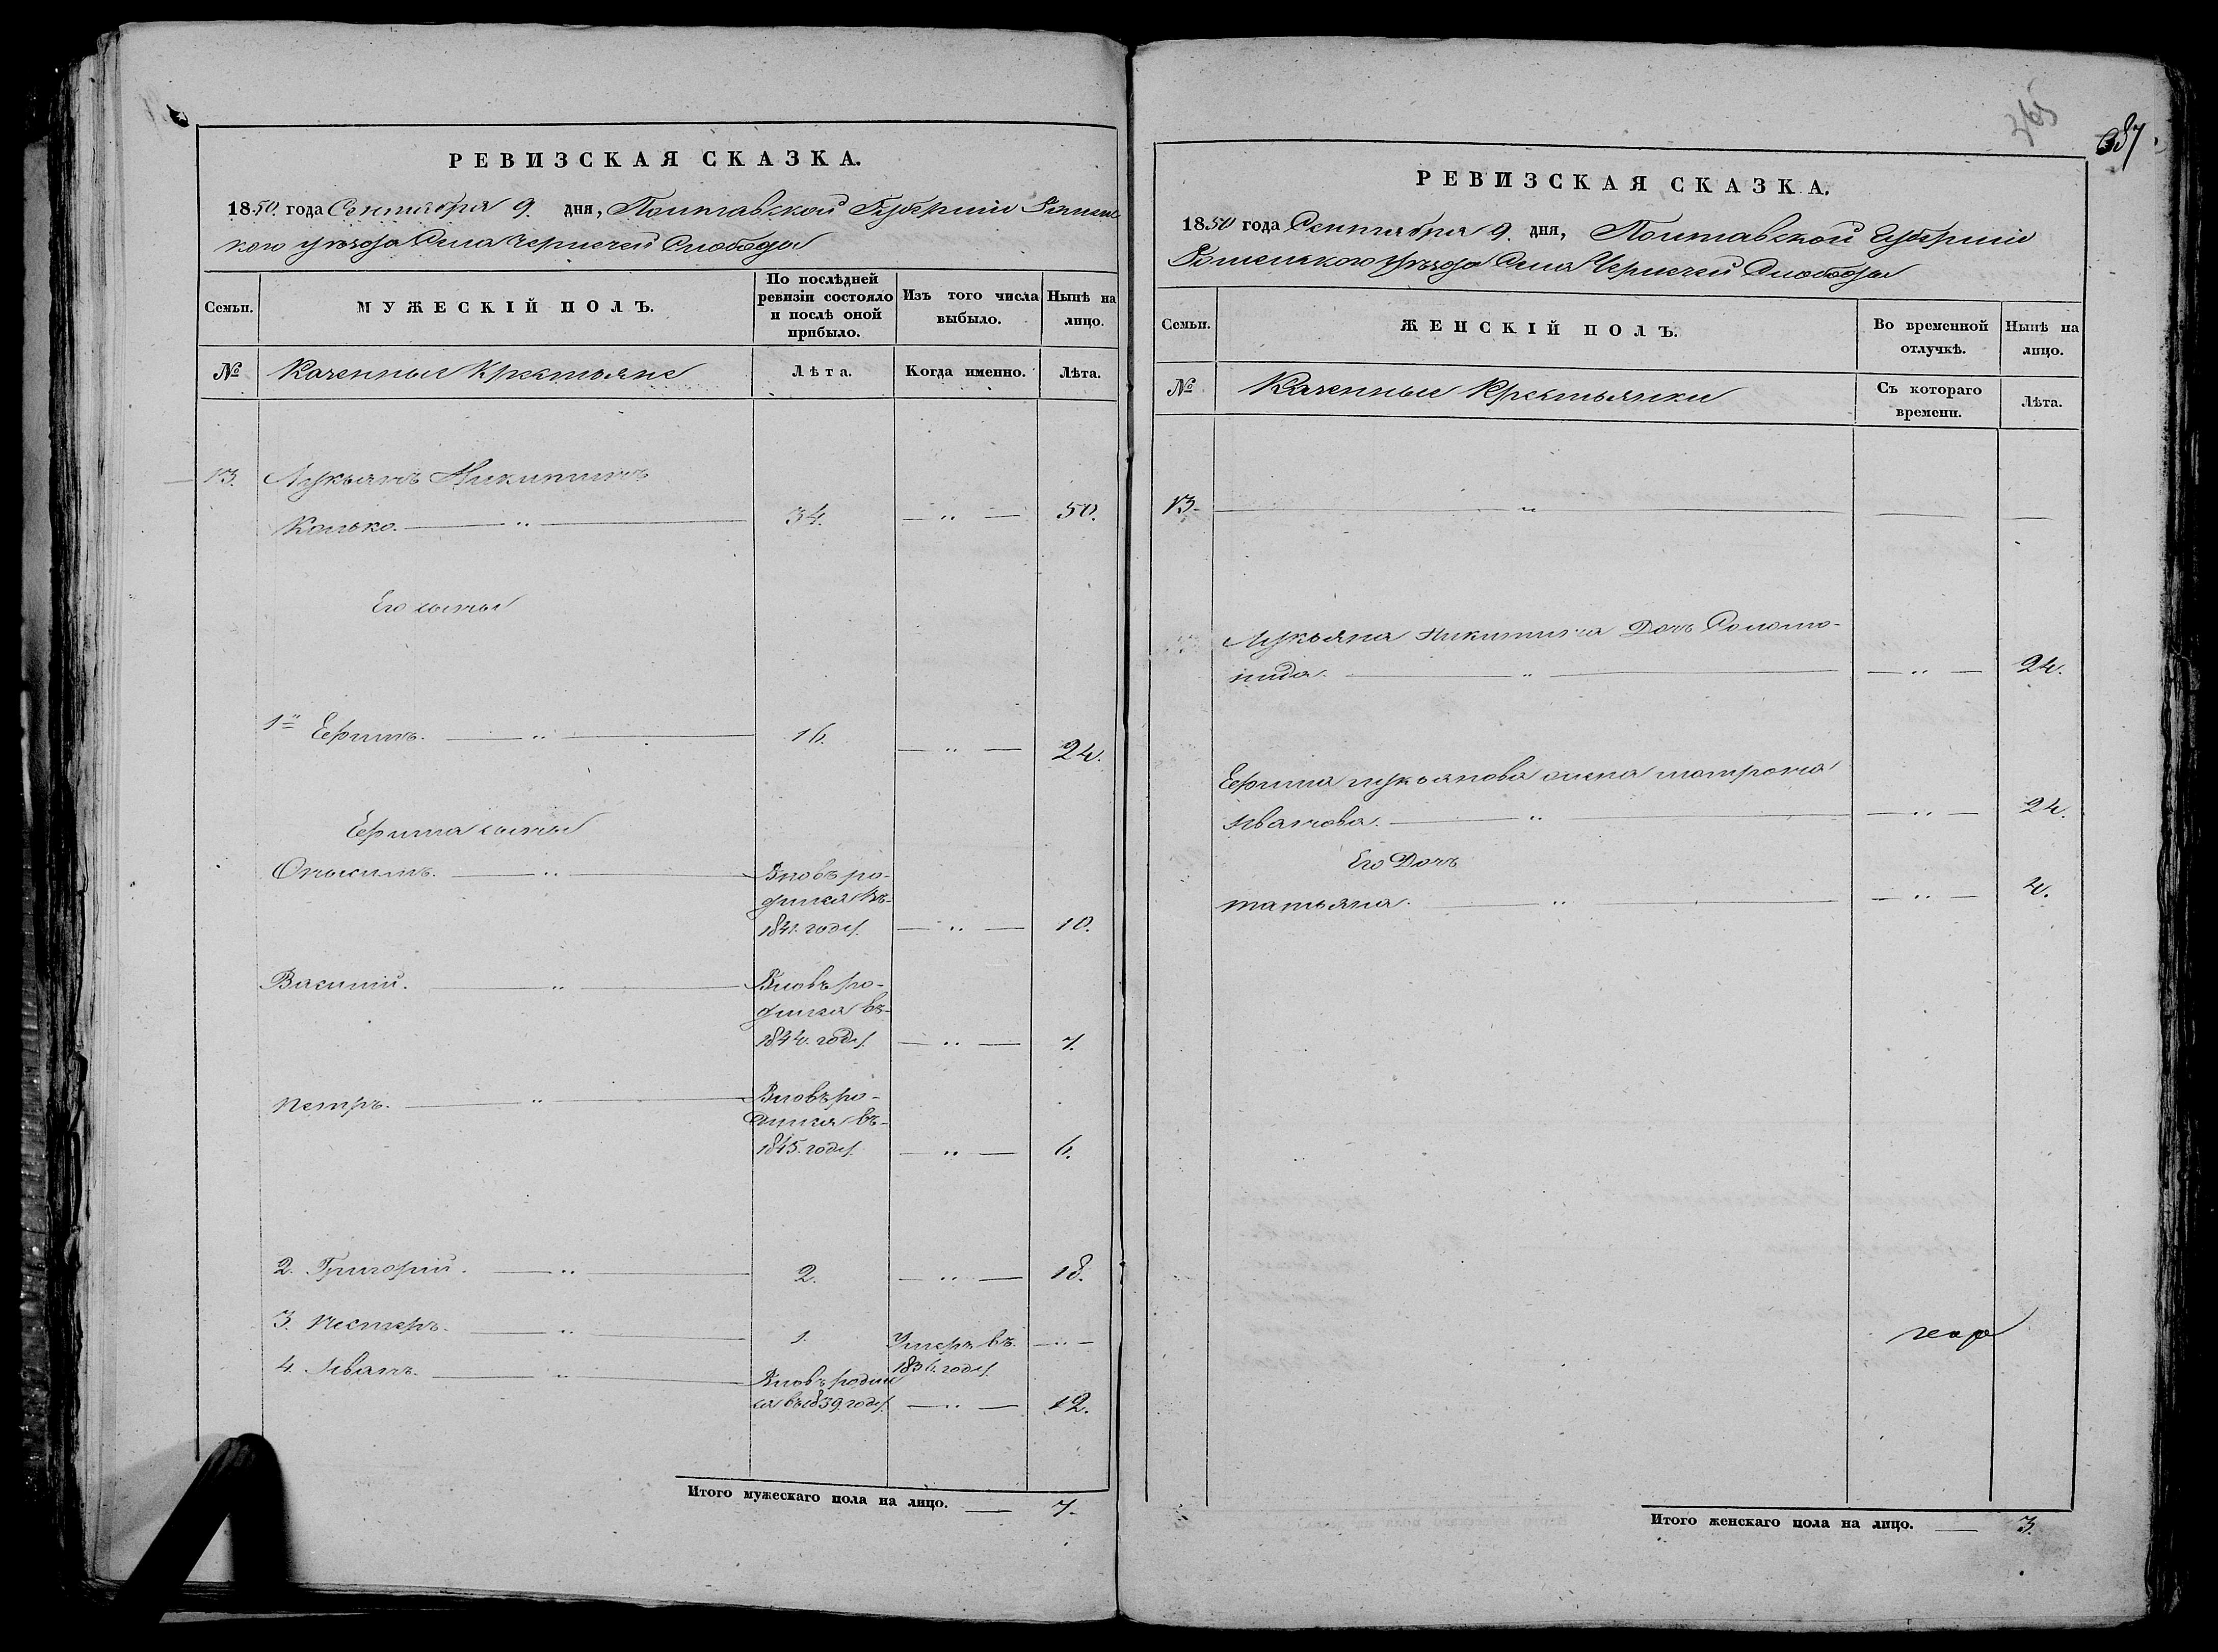 РЕВИЗСКАЯ СКАЗКА.
1850. года Сентября 9. дня, Полтавской Губернiи Роменс
кого уѣзда Села Чернечей Слободы
Семьи.
МУЖЕСКІЙ ПОЛЪ.
По послѣдней ревизіи состояло и послѣ оной прибыло.
Изъ того числа выбыло.
Нынѣ на лицо.
№
Казенные Крестьяне
Лѣта.
Когда именно.
Лѣта.
13. Лукьянъ Никитинъ
Колько. 34. 50.
Его сыны
1й Ефимъ. 16. 24.
Ефима сыны
Онисимъ. Вновь ро-
дился въ-
1841. году. 10.
Василій. Вновь ро-
дился въ-
1844. году. 7.
Петръ. Вновь ро-
дился въ-
1845. году. 6.
2. Григорій. 2. 18.
3. Нестеръ. 1. Умеръ въ
1836. году.
4. Иванъ. Вновь родил
ся въ 1839. году. 12.
Итого мужескаго пола на лицо. 7.
365
387
РЕВИЗСКАЯ СКАЗКА.
1850 года Сентября 9. дня, Полтавской Губерніи
Роменского уѣзда Села Чернечей Слободы
Семьи.
ЖЕНСКІЙ ПОЛЪ.
Во временной отлучкѣ.
Нынѣ на лицо.
№
Казенные Крестьянки
Съ котораго времени.
Лѣта.
13.
Лукьяна Никитина Дочь Соломо-
нида. 24.
Ефима Лукьянова жена Матрона
Иванова. 24.
Его Дочь
Татьяна. 4.
Итого женскаго пола на лицо. 3.